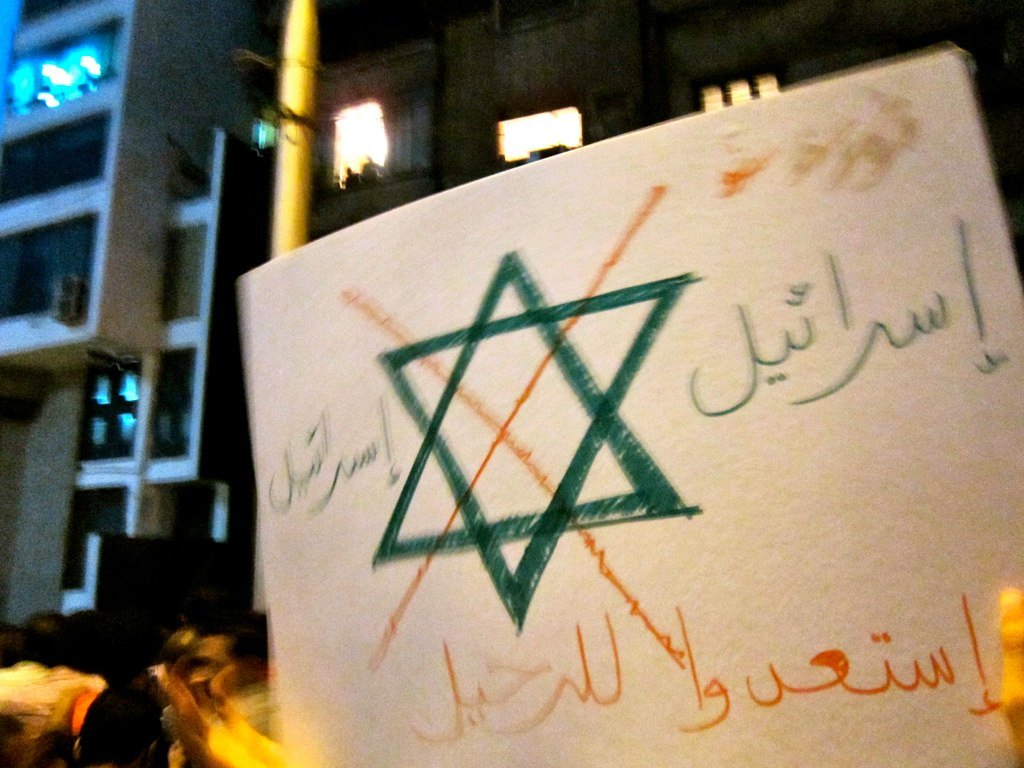 إسرائيل
إسرائيل
إستعدوا للرحيل